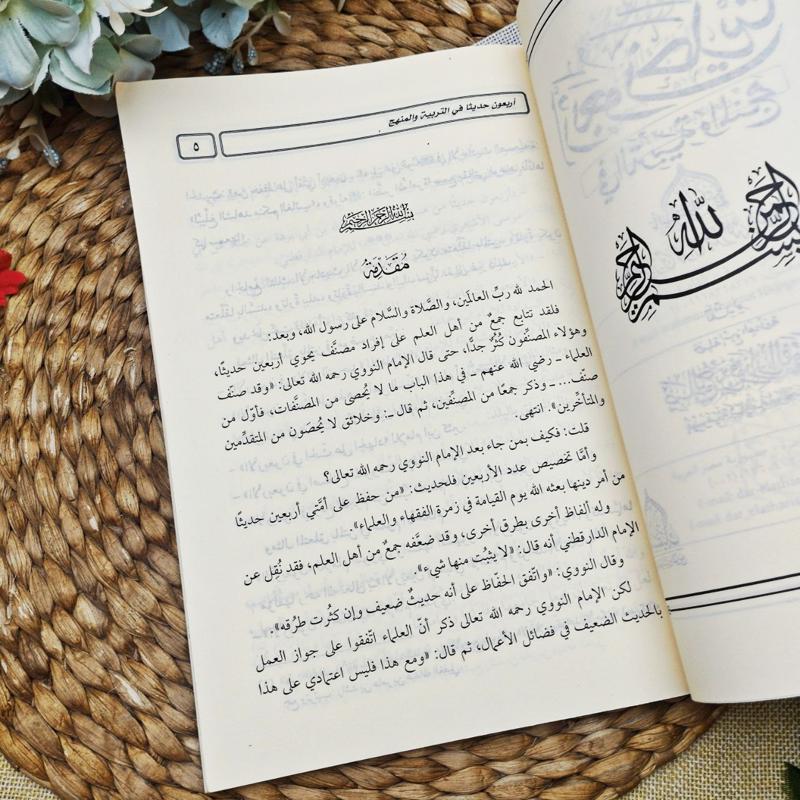 أربعون حديثا في التربية والمنهج
٥
بسم الله الرحمن الرحيم
مُقَدِّمَة
الحمد لله ربِّ العالمَين، والصَّلاة والسَّلام على رسول الله، وبعد:
فلقد تتابع جمعٌ من أهل العلم على إفراد مصنَّف يحوي أربعين حديثًا،
وهؤلاء المصنِّفون كُثُرٌ جدًّا، حتى قال الإمام النووي رحمه الله تعالى: «وقد صنّف
العلماء ـ رضي الله عنهم ـ في هذا الباب ما لا يُحصى من المصنَّفات، فأوّل من
صنّف... ـ وذكر جمعًا من المصنِّفين، ثم قال ـ: وخلائق لا يُحصَون من المتقدِّمين
والمتأخِّرين». انتهى.
قلت: فكيف بمن جاء بعد الإمام النووي رحمه الله تعالى؟
وأمَّا تخصيص عدد الأربعين فلحديث: «من حفظ على أمَّتي أربعين حديثًا
من أمر دينها بعثه الله يوم القيامة في زمرة الفقهاء والعلماء».
وله ألفاظ أخرى بطرق أخرى، وقد ضعَّفه جمعٌ من أهل العلم، فقد نُقِل عن
الإمام الدارقطني أنه قال: «لا يثبُت منها شيء».
وقال النووي: «واتّفق الحفّاظ على أنه حديثٌ ضعيف وإن كثُرت طرُقه».
لكن الإمام النووي رحمه الله تعالى ذكر أنّ العلماء اتّفقوا على جواز العمل
بالحديث الضعيف في فضائل الأعمال، ثم قال: «ومع هذا فليس اعتمادي على هذا
بسم الله الرحمن الرحيم